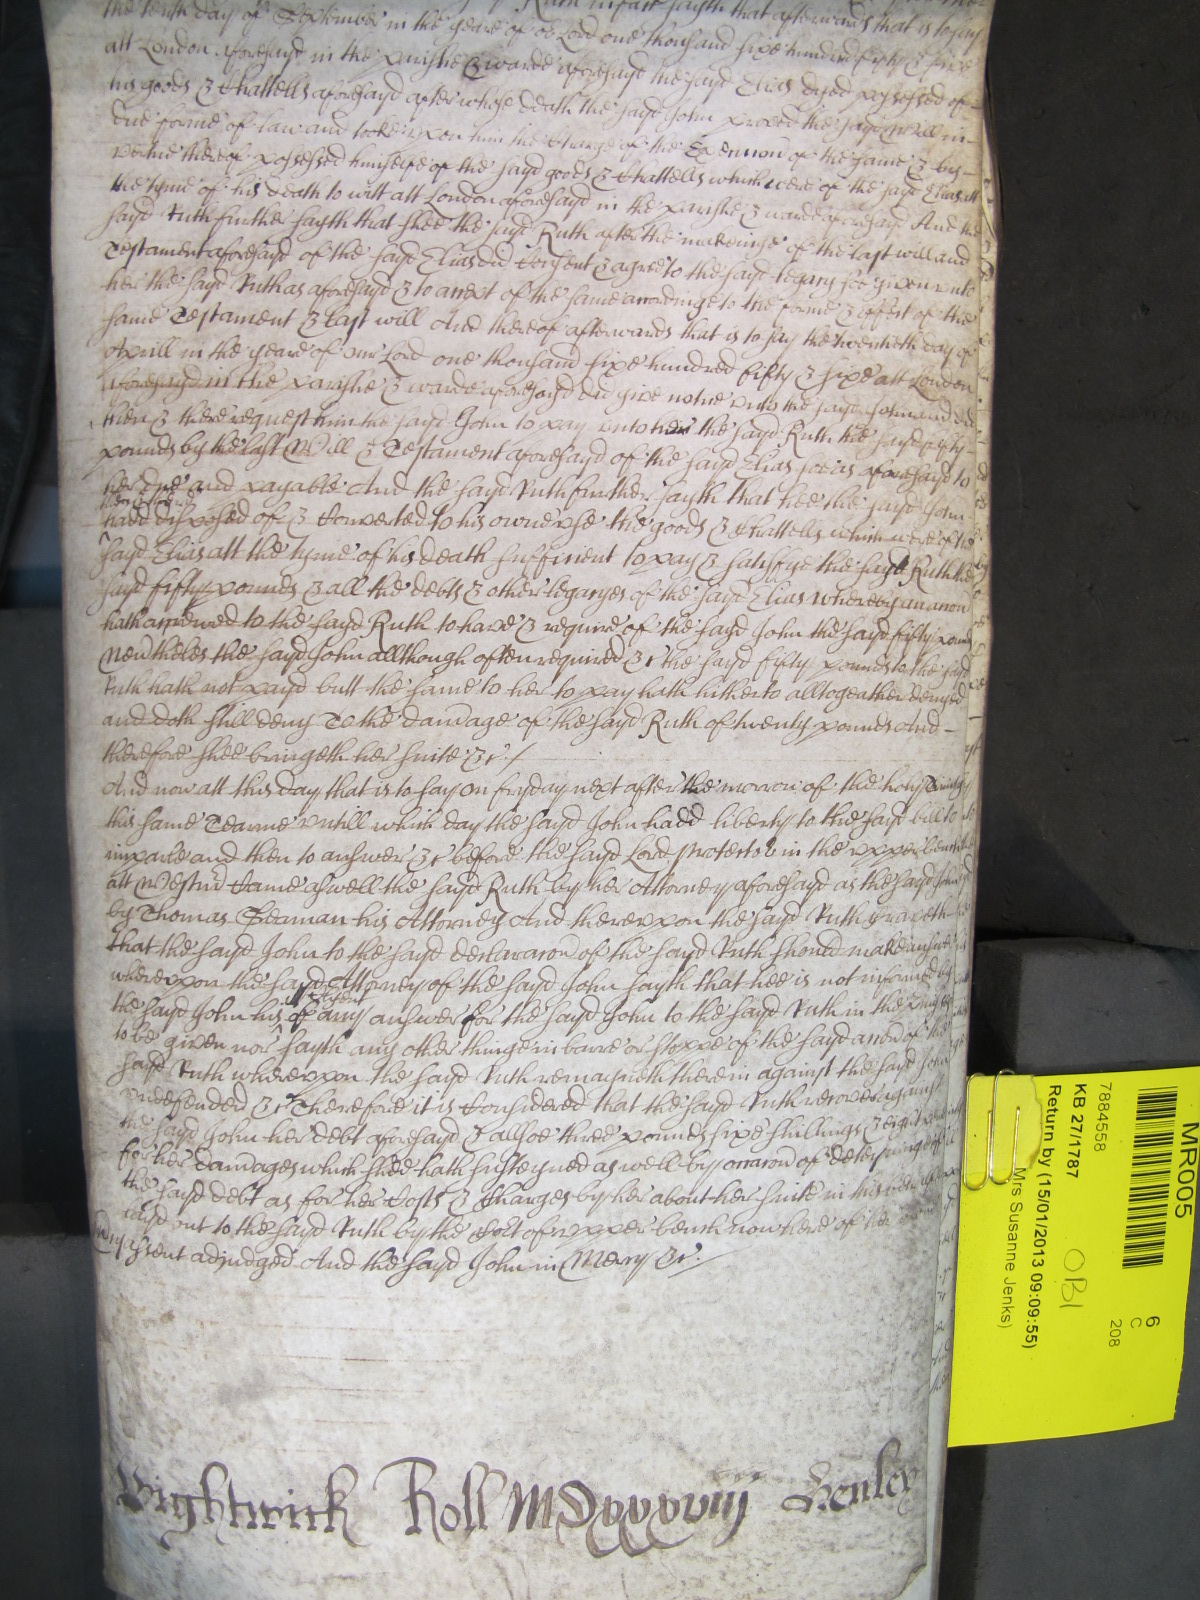 the tenth day of September in the yeare of o^r Lord one thousand sixe hundred fifty & five
att London aforesayd in the parishe & warde aforesayd the sayd Elias dyed possessed of
his goods & Chattells aforesayd after whose death the sayd John proved the sayd Will in
due forme of law and tooke vpon him the Charge of the Execucon of the same & by
vertue thereof possessed himselfe of the sayd goods & Chattells which were of the sayd Elias att
the tyme of his death to witt att London aforesayd in the parishe & warde aforesayd And the
sayd Ruth further sayth that shee the sayd Ruth after the makeinge of the last will and
Testament aforesayd of the sayd Elias did Consent & agree to the sayd legacy soe given vnto
her the sayd Ruth as aforesayd & to accept of the same accordinge to the forme & effect of the
same Testament & last will And thereof afterwards that is to say the twentieth day of
Aprill in the yeare of our Lord one thousand sixe hundred fifty & sixe att London
aforesayd in the parishe & warde aforesayd did give notice vnto the sayd John and did
then & there request him the sayd John to pay vnto her the sayd Ruth the sayd fifty
pounds by the last Will & Testament aforesayd of the sayd Elias soe as aforesayd to
her due and payable And the sayd Ruth further sayth that hee the sayd John
hadd disposed of & Converted to his owne vse the goods & Chattells which were of the
sayd Elias att the tyme of his death sufficient to pay & satisfye the sayd Ruth the
sayd fifty pounds & all the debts & other legacyes of the sayd Elias whereby an accon
hath accrewed to the sayd Ruth to have & require of the sayd John the sayd fifty pounds
Neu'theles the sayd John allthough often required &c the sayd fifty pounds to the sayd
Ruth hath not payd butt the same to her to pay hath hitherto alltogeather denyed
and doth still deny To the damage of the sayd Ruth of twenty pounds And
therefore shee bringeth her suite &c /
And now att this day that is to say on fryday next after the morrow of the holy Trinity
this same Tearme vntill which day the sayd John hadd liberty to the sayd bill to
imparle and then to answer &c before the sayd Lord Protector in the vpper bench
att Westm' Came aswell the sayd Ruth by her Attorney aforesayd as the sayd John
by Thomas Seaman his Attorney And therevpon the sayd Ruth prayeth
that the sayd John to the sayd declaracon of the sayd Ruth should make answer
wherevpon the sayd Attorney of the sayd John sayth that hee is not informed by
the sayd John his Clyent of any answer for the sayd John to the sayd Ruth in the
to be given nor sayth any other thinge in barre or stoppe of the sayd accon of the
sayd Ruth wherevpon the sayd Ruth remayneth therein against the sayd John
vndefended &c Therefore it is Considered that the sayd Ruth recover against
the sayd John her debt aforesayd & allsoe three pounds sixe shillings & eight
for her damages which shee hath susteyned as well by occacon of deteyninge of
the sayd debt as for her Costs & Charges by her about her suite in this behalfe
layd out to the sayd Ruth by the Co^rt of vpper bench now here of
assent adjudged And the sayd John in Mercy &c /
Wightwick Roll MDxxxxviij Henley
MR005
6
C
208
7884558
KB 27/1787
OB1
Return by (15/01/2013 09:09:55)
Mrs Susanne Jenks)